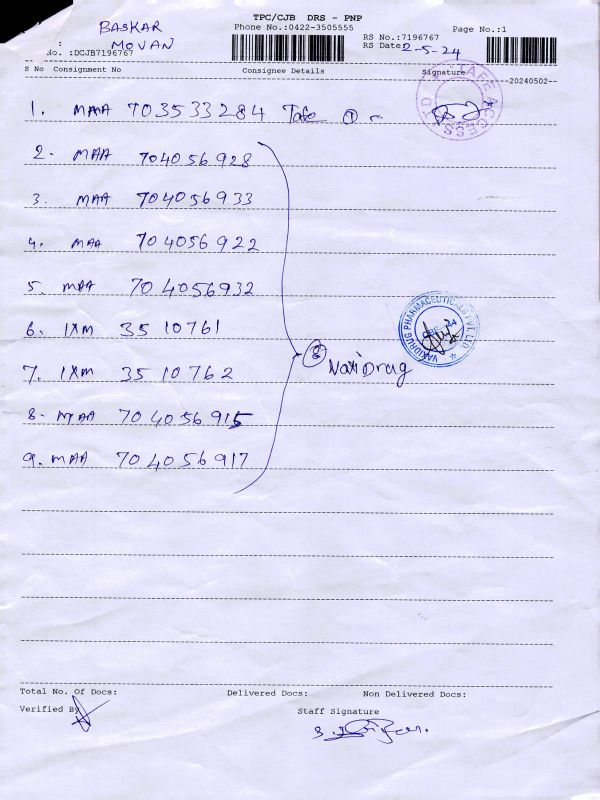 TPC/CJB DRS - PNP
BASKAR
Phone No.:0422-3505555
Page No.:1
RS No.:7196767
: MOVAN
RS Date: 2-5-24
No. :DCJB7196767
S No Consignment No Consignee Details Signature
--20240502--
1. MAA 703533284 Tafe ①
2. MAA 704056928
3. MAA 704056933
4. MAA 704056922
5. MAA 704056932
6. IXM 3510761
7. IXM 3510762
⑧ Naxidrug
VAXIDRUG PHARMACEUTICALS PVT LTD
8. MAA 704056915
9. MAA 704056917
Total No. Of Docs: Delivered Docs: Non Delivered Docs:
Verified By
Staff Signature